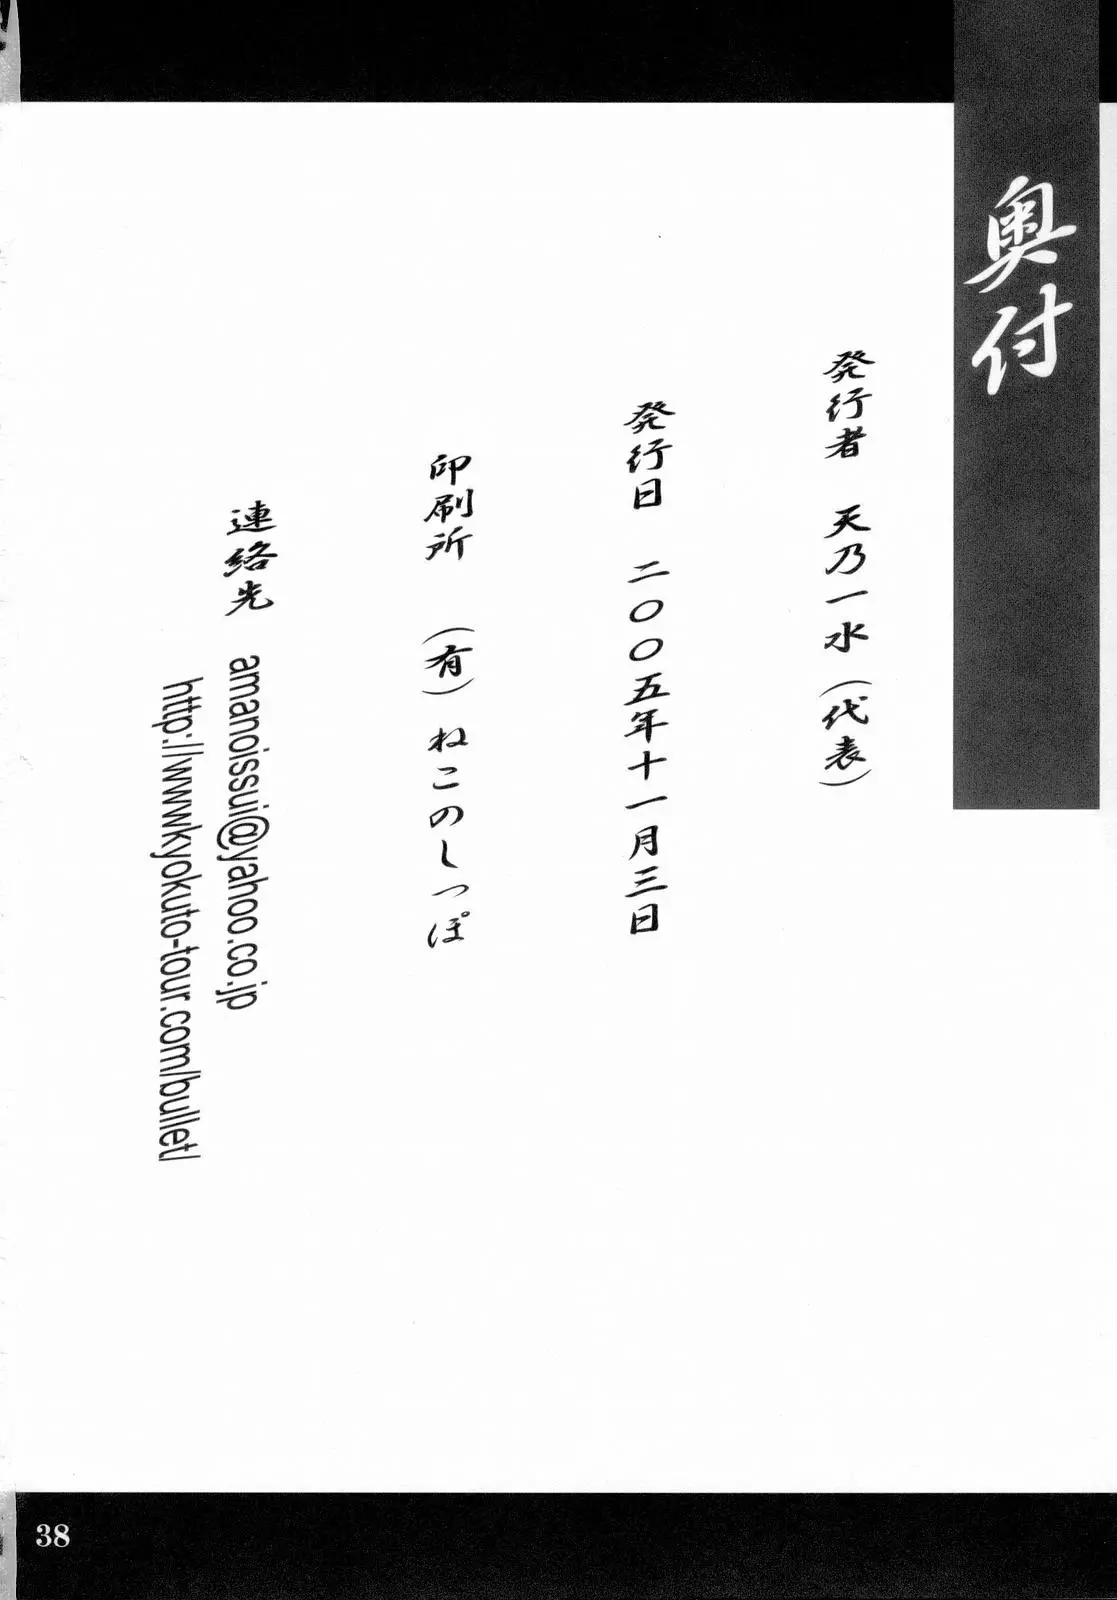 奥付
発行者 天乃一水(代表)
発行日 二〇〇五年十一月三日
印刷所 (有)ねこのしっぽ
連絡先 amanoissui@yahoo.co.jp
http://www.kyokuto-tour.com/bullet/
38